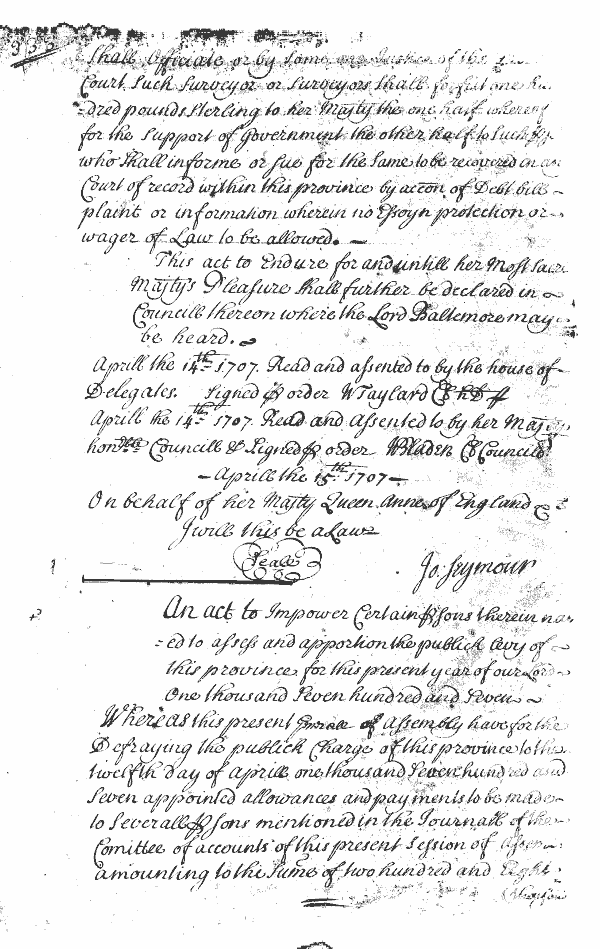 335
Shall Officiate or by Some one Justice of the
Court Such Surveyor or Surveyors Shall forfeit one hu
=dred pounds Sterling to her Majty the one half whereof
for the Support of Government the other half to Such
who Shall informe or sue for the Same to be recovered in an
Court of record within this province by accon of Debt bill
plaint or information wherein no Essoyn protection or
wager of Law to be allowed. —
This act to Endure for and untill her Most Sacr
Majtys Pleasure Shall further be declared in
Councill thereon where the Lord Baltemore may
be heard.
Aprill the 14th 1707. Read and assented to by the house of
Delegates. Signed ꝑ order W Taylard
Aprill the 14th 1707. Read and assented to by her Majtys
honble Councill & Signed ꝑ order WBladen Cl Councill
— Aprill the 15th 1707 —
On behalf of her Majty Queen Anne of England &c
I will this be a Law
Seale Jo. Seymour
An act to Impower Certain ꝑsons therein na
=ed to assess and apportion the publick Levy of
this province for this present year of our Lord
One thousand Seven hundred and Seven
Whereas this present of Assembly have for the
Defraying the publick Charge of this province to the
twelfth Day of Aprill one thousand Seven hundred and
Seven appointed allowances and payments to be made
to Severall ꝑsons mentioned in the Journall of the
Comittee of accounts of this present Session of Assem
amounting to the Sume of two hundred and Eight